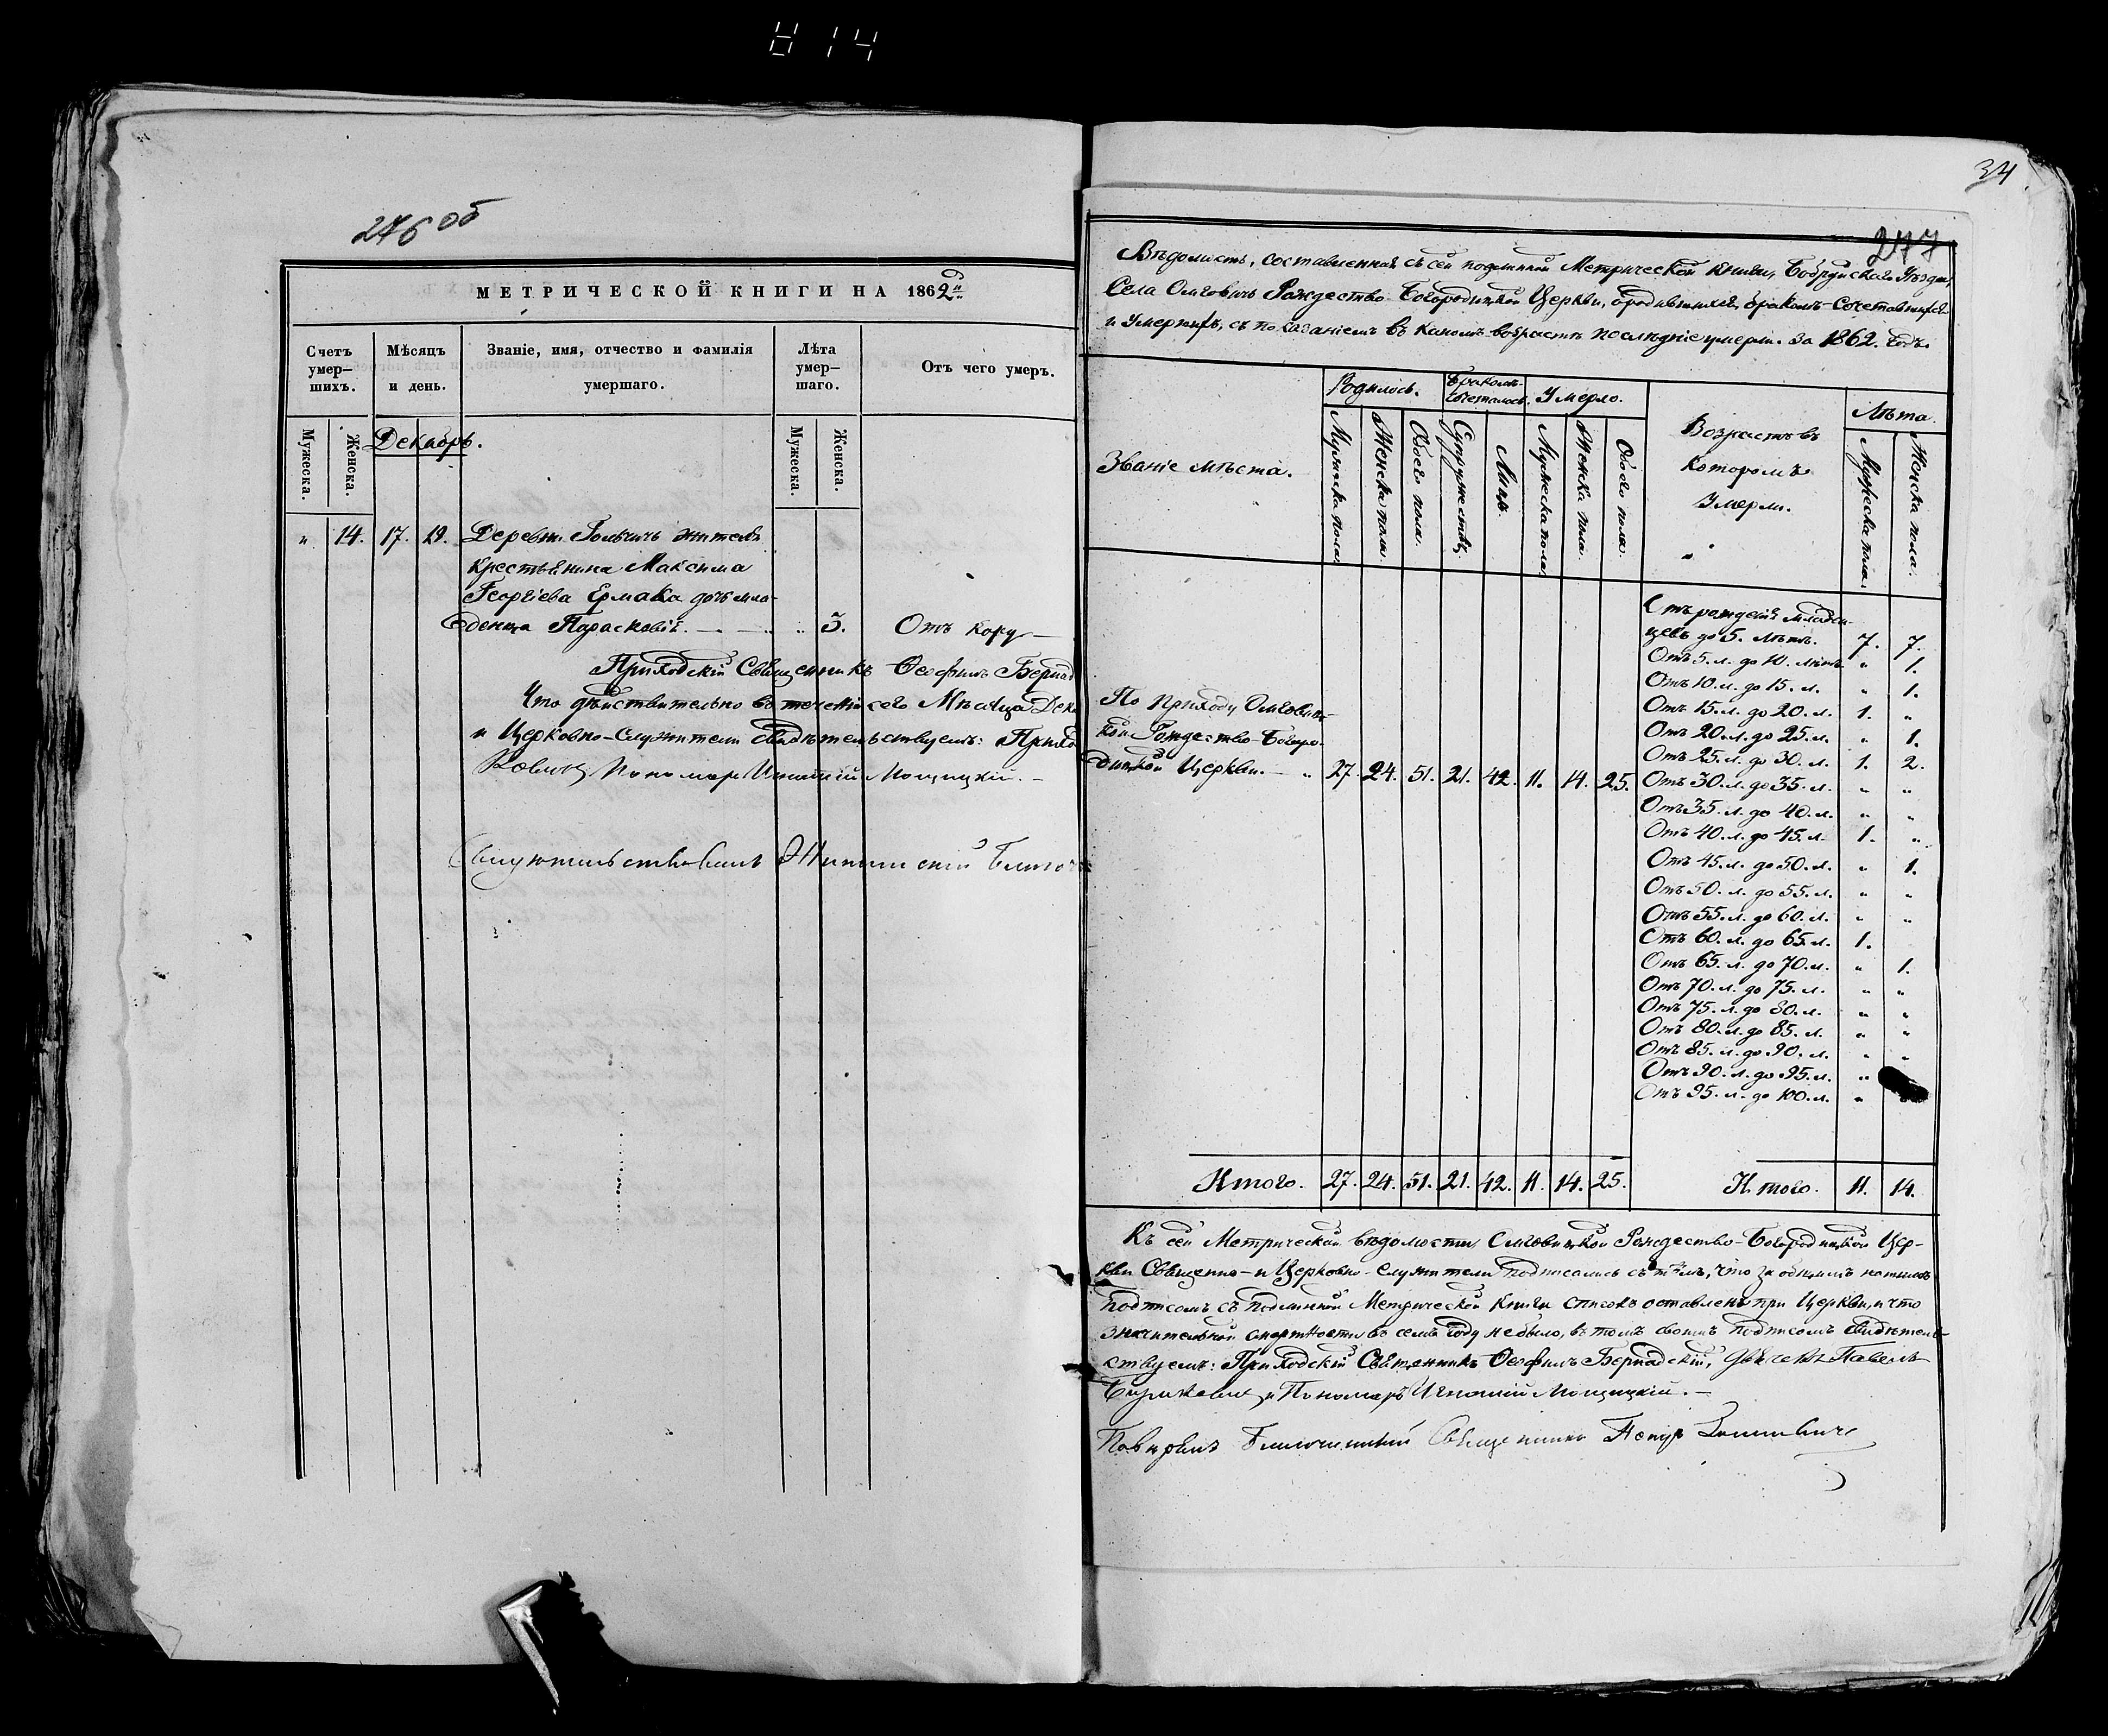 814
276 об
МЕТРИЧЕСКОЙ КНИГИ НА 1862й
Счетъ умер-шихъ.
Мѣсяцъ и день.
Званіе, имя, отчество и фамилія умершаго.
Лѣта умер-шаго.
Отъ чего умеръ.
Мужеска.
Женска.
Декабрь.
Мужеска.
Женска.
" 14. 17. 19. Деревни жителя
крестьянина Максима
Георгіева Ермака дочь мла-
денца Параскевія. " 3. Отъ кору
Приходскій Священникъ Ѳеофилъ Бернад
Что дѣйствительно въ теченіи сего Мѣсяца Дека
и Церковно-служители свидѣтельствуемъ: Прихо
Пономарь Игнатій Мощицкій.
34
277
Вѣдомость, составленная съ сей подлинной Метрической книги, Бобруйскаго Уѣзда,
Села Омговичъ Рождество-Богородицкой Церкви, о родившихся, бракомъ-сочетавшихся
и Умершихъ, съ показаніемъ въ какомъ возрастѣ послѣдніе умерли. За 1862. Годъ.
Званіе мѣста.
Родилось.
Бракомъ-сочеталось.
Умерло.
Возрастъ въ
которомъ
Умерли.
Лѣта.
Мужеска пола.
Женска пола.
Обоего пола.
Супружествъ.
Лицъ.
Мужеска пола.
Женска пола.
Обоего пола.
Мужеска пола.
Женска пола.
По приходу Омговиц-
кой Рождество-Богоро-
дицкой Церкви. 27. 24. 51. 21. 42. 11. 14. 25.
Отъ рожденія младен-
цевъ до 5. лѣтъ. 7. 7.
Отъ 5. л. до 10. лѣтъ. " 1.
Отъ 10. л. до 15. л. " 1.
Отъ 15. л. до 20. л. 1. "
Отъ 20. л. до 25. л. " 1.
Отъ 25. л. до 30. л. 1. 2.
Отъ 30. л. до 35. л. " "
Отъ 35. л. до 40. л. " "
Отъ 40. л. до 45. л. 1. "
Отъ 45. л. до 50. л. " 1.
Отъ 50. л. до 55. л. " "
Отъ 55. л. до 60. л. " "
Отъ 60. л. до 65. л. 1.
Отъ 65. л. до 70. л. " 1.
Отъ 70. л. до 75. л. " "
Отъ 75. л. до 80. л. " "
Отъ 80. л. до 85. л. " "
Отъ 85. л. до 90. л. " "
Отъ 90. л. до 95. л. "
Отъ 95. л. до 100. л. "
Итого. 27. 24. 51. 21. 42. 11. 14. 25. Итого. 11. 14.
Къ сей Метрической вѣдомости, Омговицкой Рождество-Богородицкой Цер-
кви Священно- и Церковно-служители подписались съ тѣмъ, что за общимъ нашимъ
подписомъ съ подлинной Метрической Книги списокъ оставленъ при Церкви, и что
значительной смертности въ семъ году не было, въ томъ своимъ подписомъ свидѣтель-
ствуемъ: Приходскій Священникъ Ѳеофилъ Бернадскій, Павелъ
и Пономарь Игнатій Мощицкій.
Повѣрялъ Благочинный Священникъ Петръ